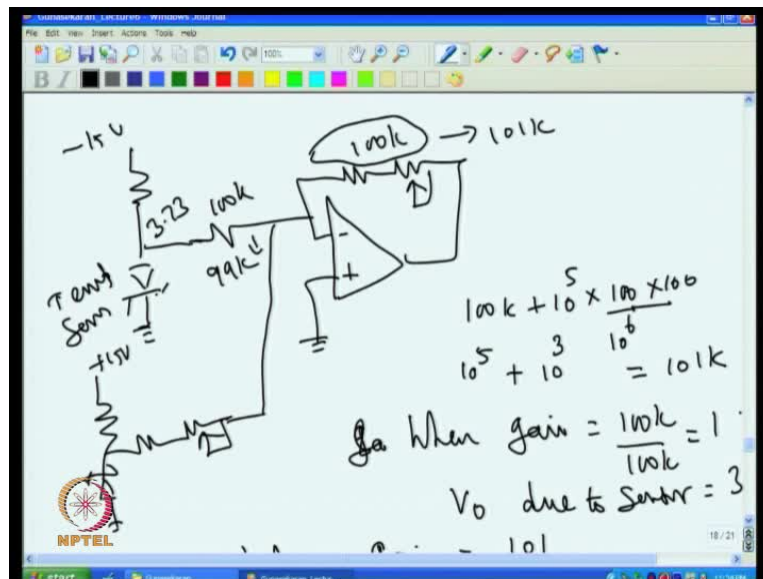 Gunasekaran_Lecture6 - Windows Journal
File Edit View Insert Actions Tools Help
100%
B I
-15V
100k → 101k
3.23
100k
99k
-
+
Temp
Sens
+15V
100k + 10^5 × 100 × 100
10^6
10^5 + 10^3 = 101k
When gain = 100k / 100k = 1
V0 due to sensor = 3
= 101
18 / 21
NPTEL
start
Gunasekaran